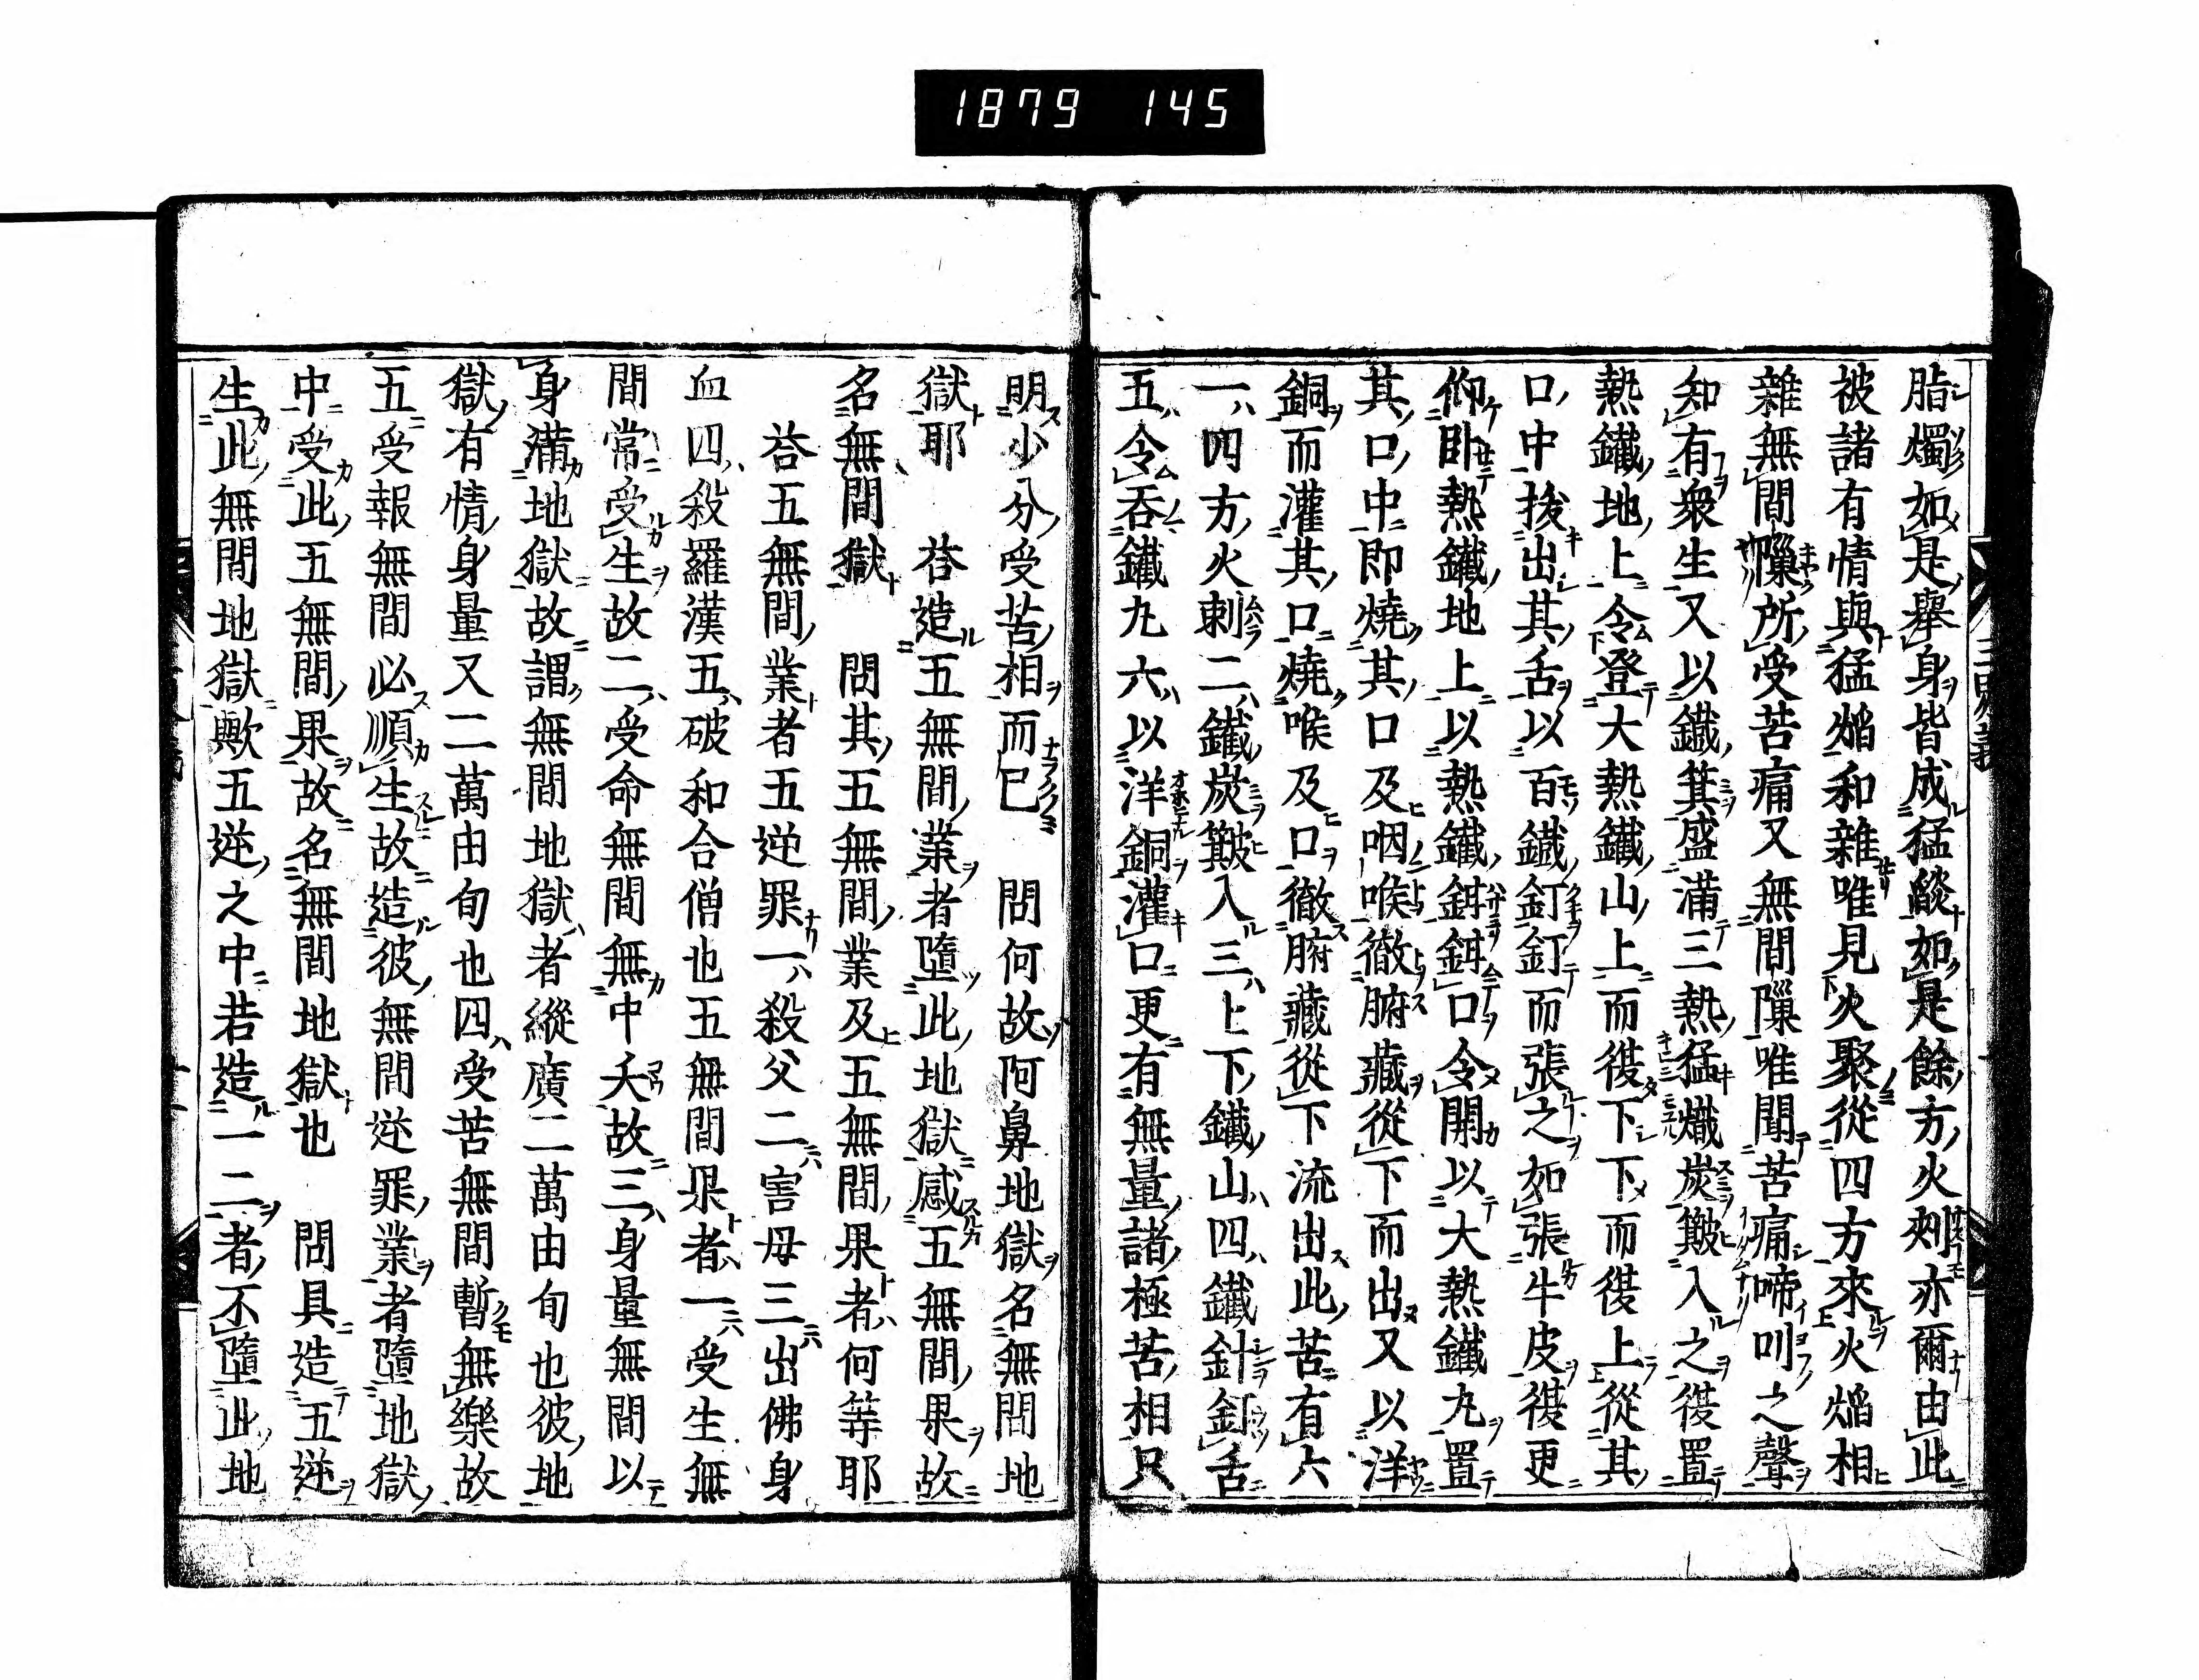 1879 145
脂燭如是擧身皆成猛燄如是餘方火刾亦爾由此
被諸有情與猛焔和雜唯見火聚從四方來火焔相
雜無間隟所受苦痛又無間隟唯聞苦痛啼叫之聲
知有衆生又以鐵箕盛滿三熱猛熾炭簸入之復置
熱鐵地上令登大熱鐵山上而復下下而復上從其
口中拔出其舌以百鐵釘釘而張之如張牛皮復更
仰臥熱鐵地上以熱鐵鉗鉗口令開以大熱鐵丸置
其口中即燒其口及咽喉徹腑藏從下而出又以洋
銅而灌其口燒喉及口徹腑藏從下流出此苦有六
一四方火刺二鐵炭簸入三上下鐵山四鐵針釘舌
五令吞鐵丸六以洋銅灌口更有無量諸極苦相只
明少分受苦相而已　問何故阿鼻地獄名無間地
獄耶　荅造五無間業者墮此地獄感五無間果故
名無間獄　問其五無間業及五無間果者何等耶
荅五無間業者五逆罪一殺父二害母三出佛身
血四殺羅漢五破和合僧也五無間果者一受生無
間常受生故二受命無間無中夭故三身量無間以
身滿地獄故謂無間地獄者縱廣二萬由旬也彼地
獄有情身量又二萬由旬也四受苦無間暫無樂故
五受報無間必順生故造彼無間逆罪業者墮地獄
中受此五無間果故名無間地獄也　問具造五逆
生此無間地獄歟五逆之中若造一二者不墮此地